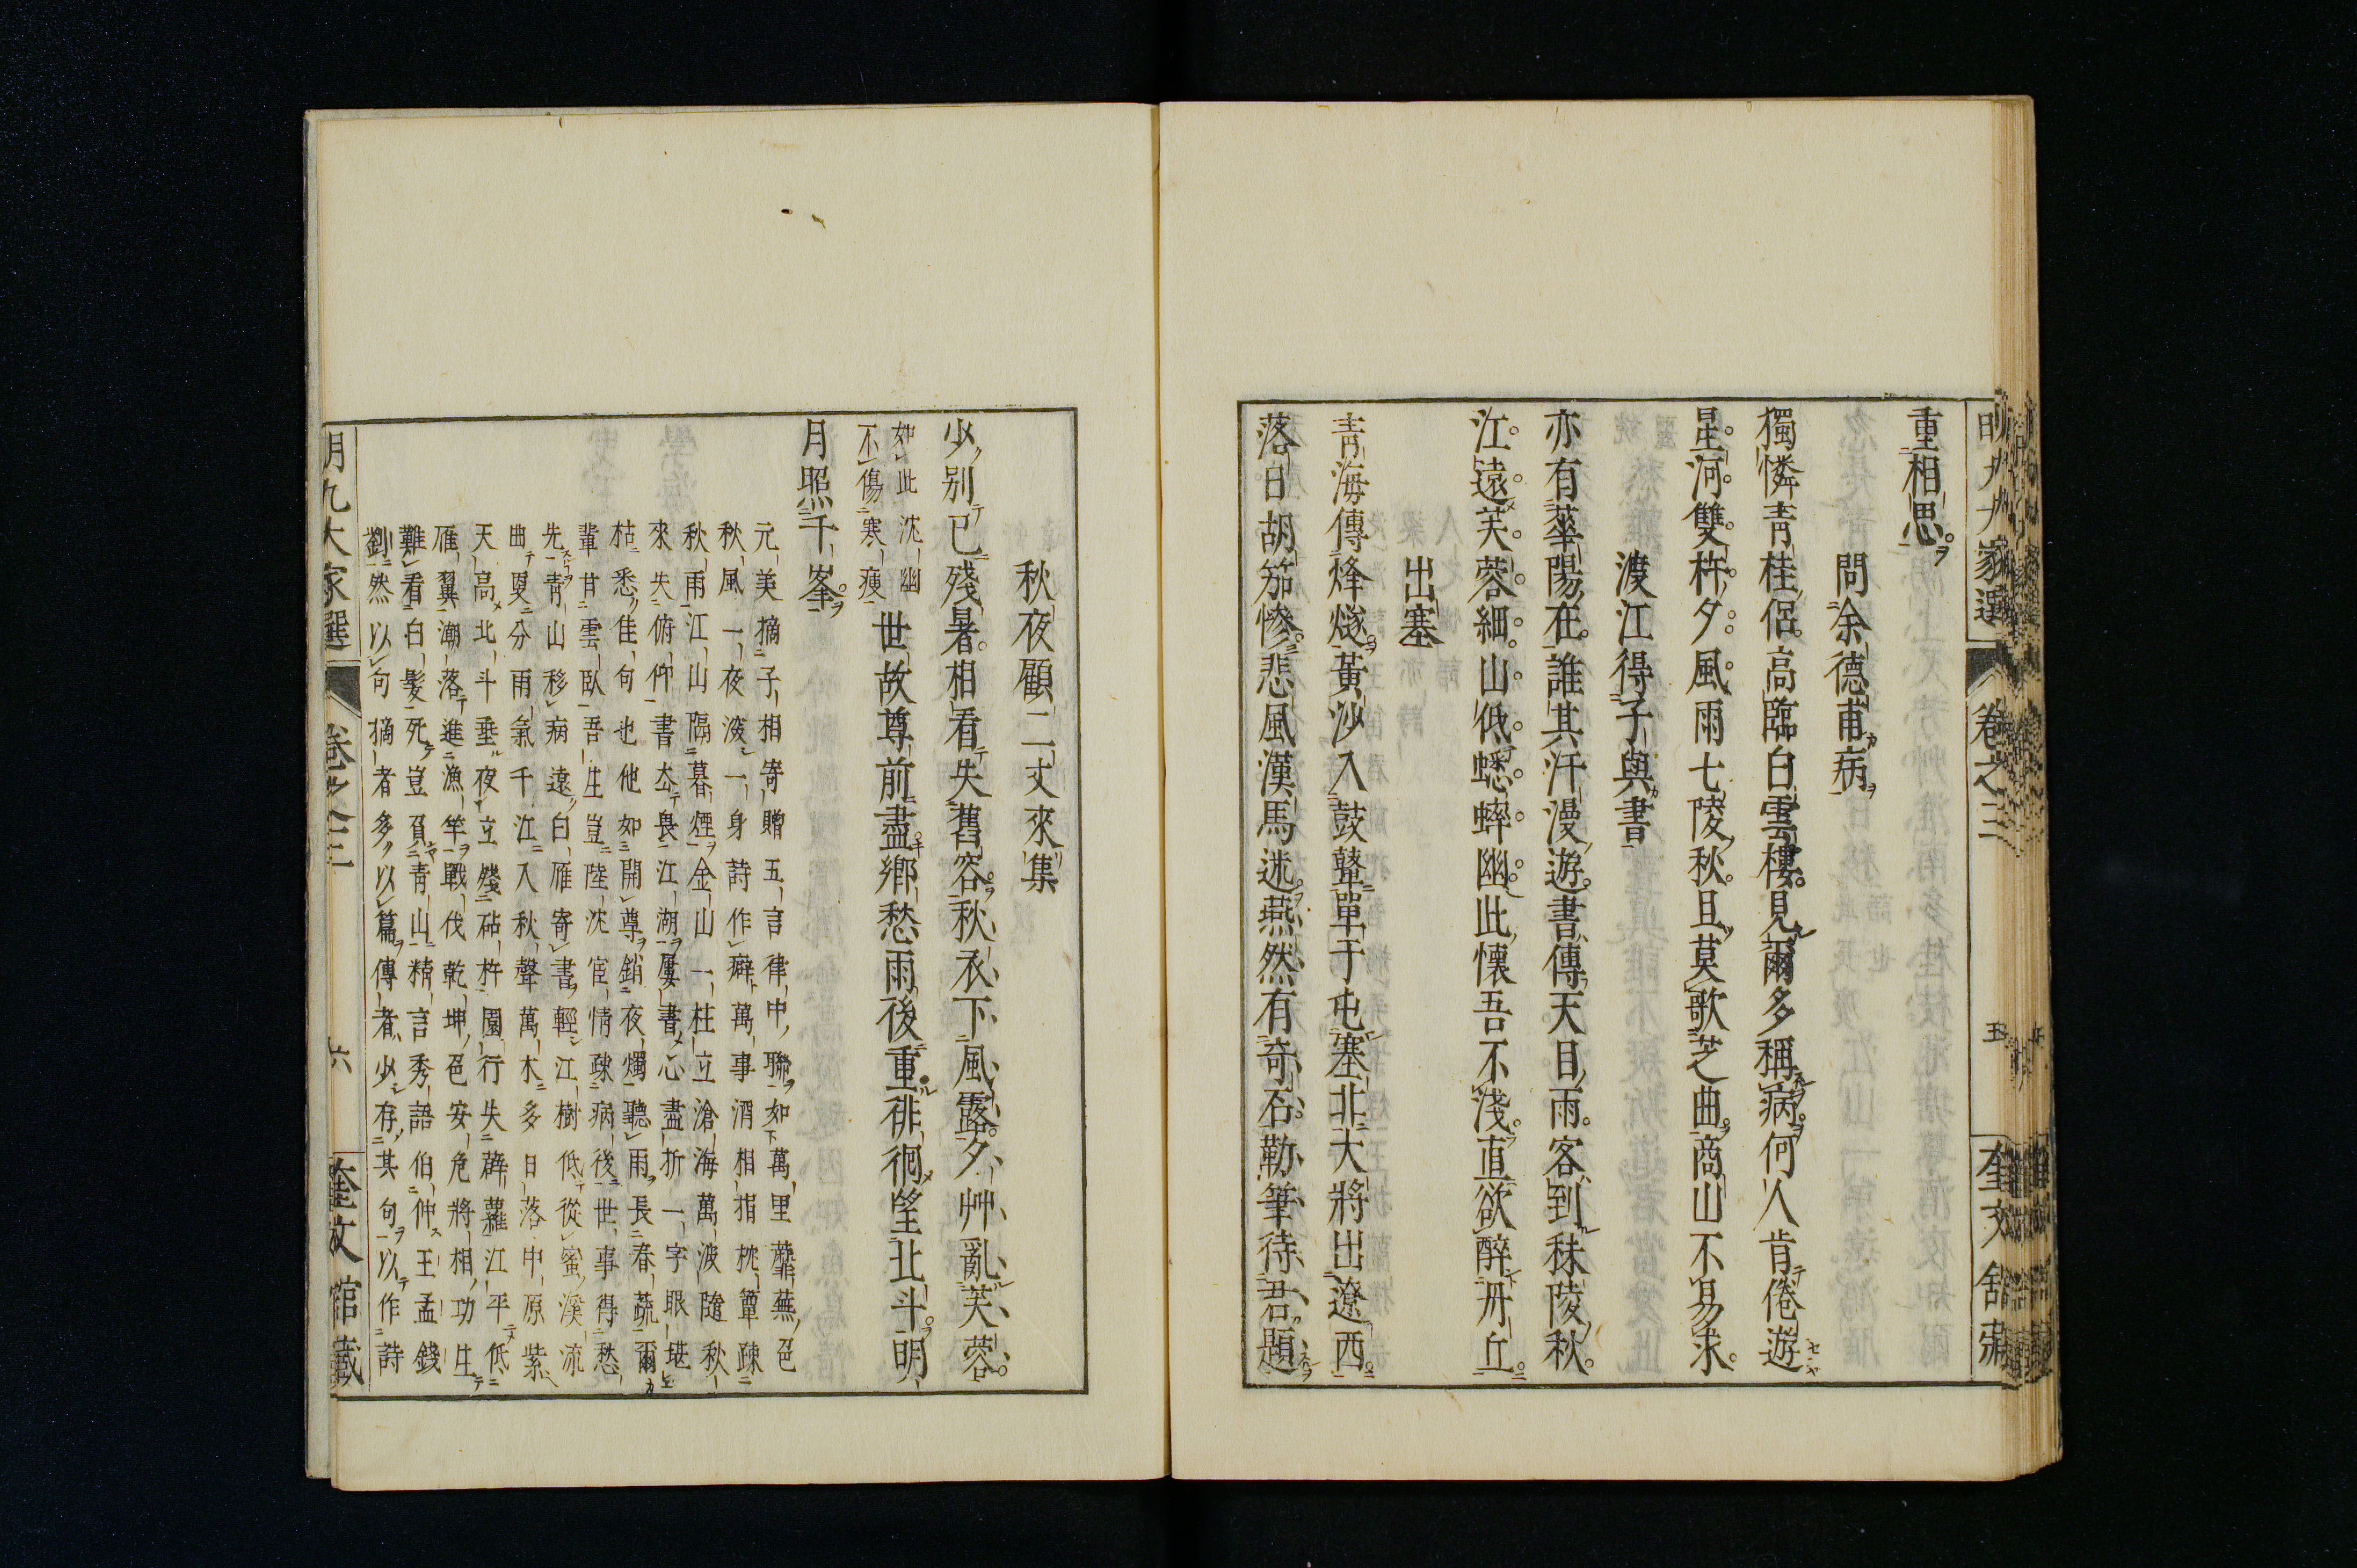 重相思
問余德甫病
獨憐青桂侶高臨白雲樓見爾多稱病何人肯倦遊
星河雙杵夕風雨七陵秋且莫歌芝曲商山不易求
渡江得子與書
亦有華陽在誰其汗漫遊書傳天目雨客到秣陵秋
江遠芙蓉細山低蟋蟀幽此懷吾不淺直欲醉丹丘
出塞
青海傳烽燧黃沙入鼓鼙單于屯塞北大將出遼西
落日胡笳慘悲風漢馬迷燕然有奇石勒筆待君題
明九大家選 卷之三 五 奎文館藏
秋夜顧二丈來集
少別已殘暑相看失舊容秋衣下風露夕艸亂芙蓉
如此沈幽
不傷寒瘦
世故尊前盡鄉愁雨後重徘徊望北斗明
月照千峯
元美摘子相寄贈五言律中聯如萬里蘼蕪色
秋風一夜淡一身詩作癖萬事酒相捐枕簟疎秋
秋雨江山隔暮煙金山一柱立滄海萬波隨秋
來失俯仰書去畏江湖屢書心盡折一字眼堪
枯悉佳句也他如開尊銷夜燭聽雨長春蔬爾
輩甘雲臥吾生豈陸沈宦情疎病後世事得愁
先青山移病遠白雁寄書輕江樹低從蜜溪流
曲更分雨氣千江入秋聲萬木多日落中原紫
天高北斗垂夜立殘砧杵園行失薜蘿江平低
雁翼潮落進漁竿戰伐乾坤色安危將相功生
難看白髮死豈負青山精言秀語伯仲王孟錢
劉然以句摘者多以篇傳者少存其句以作詩
明九大家選 卷之三 六 奎文館藏